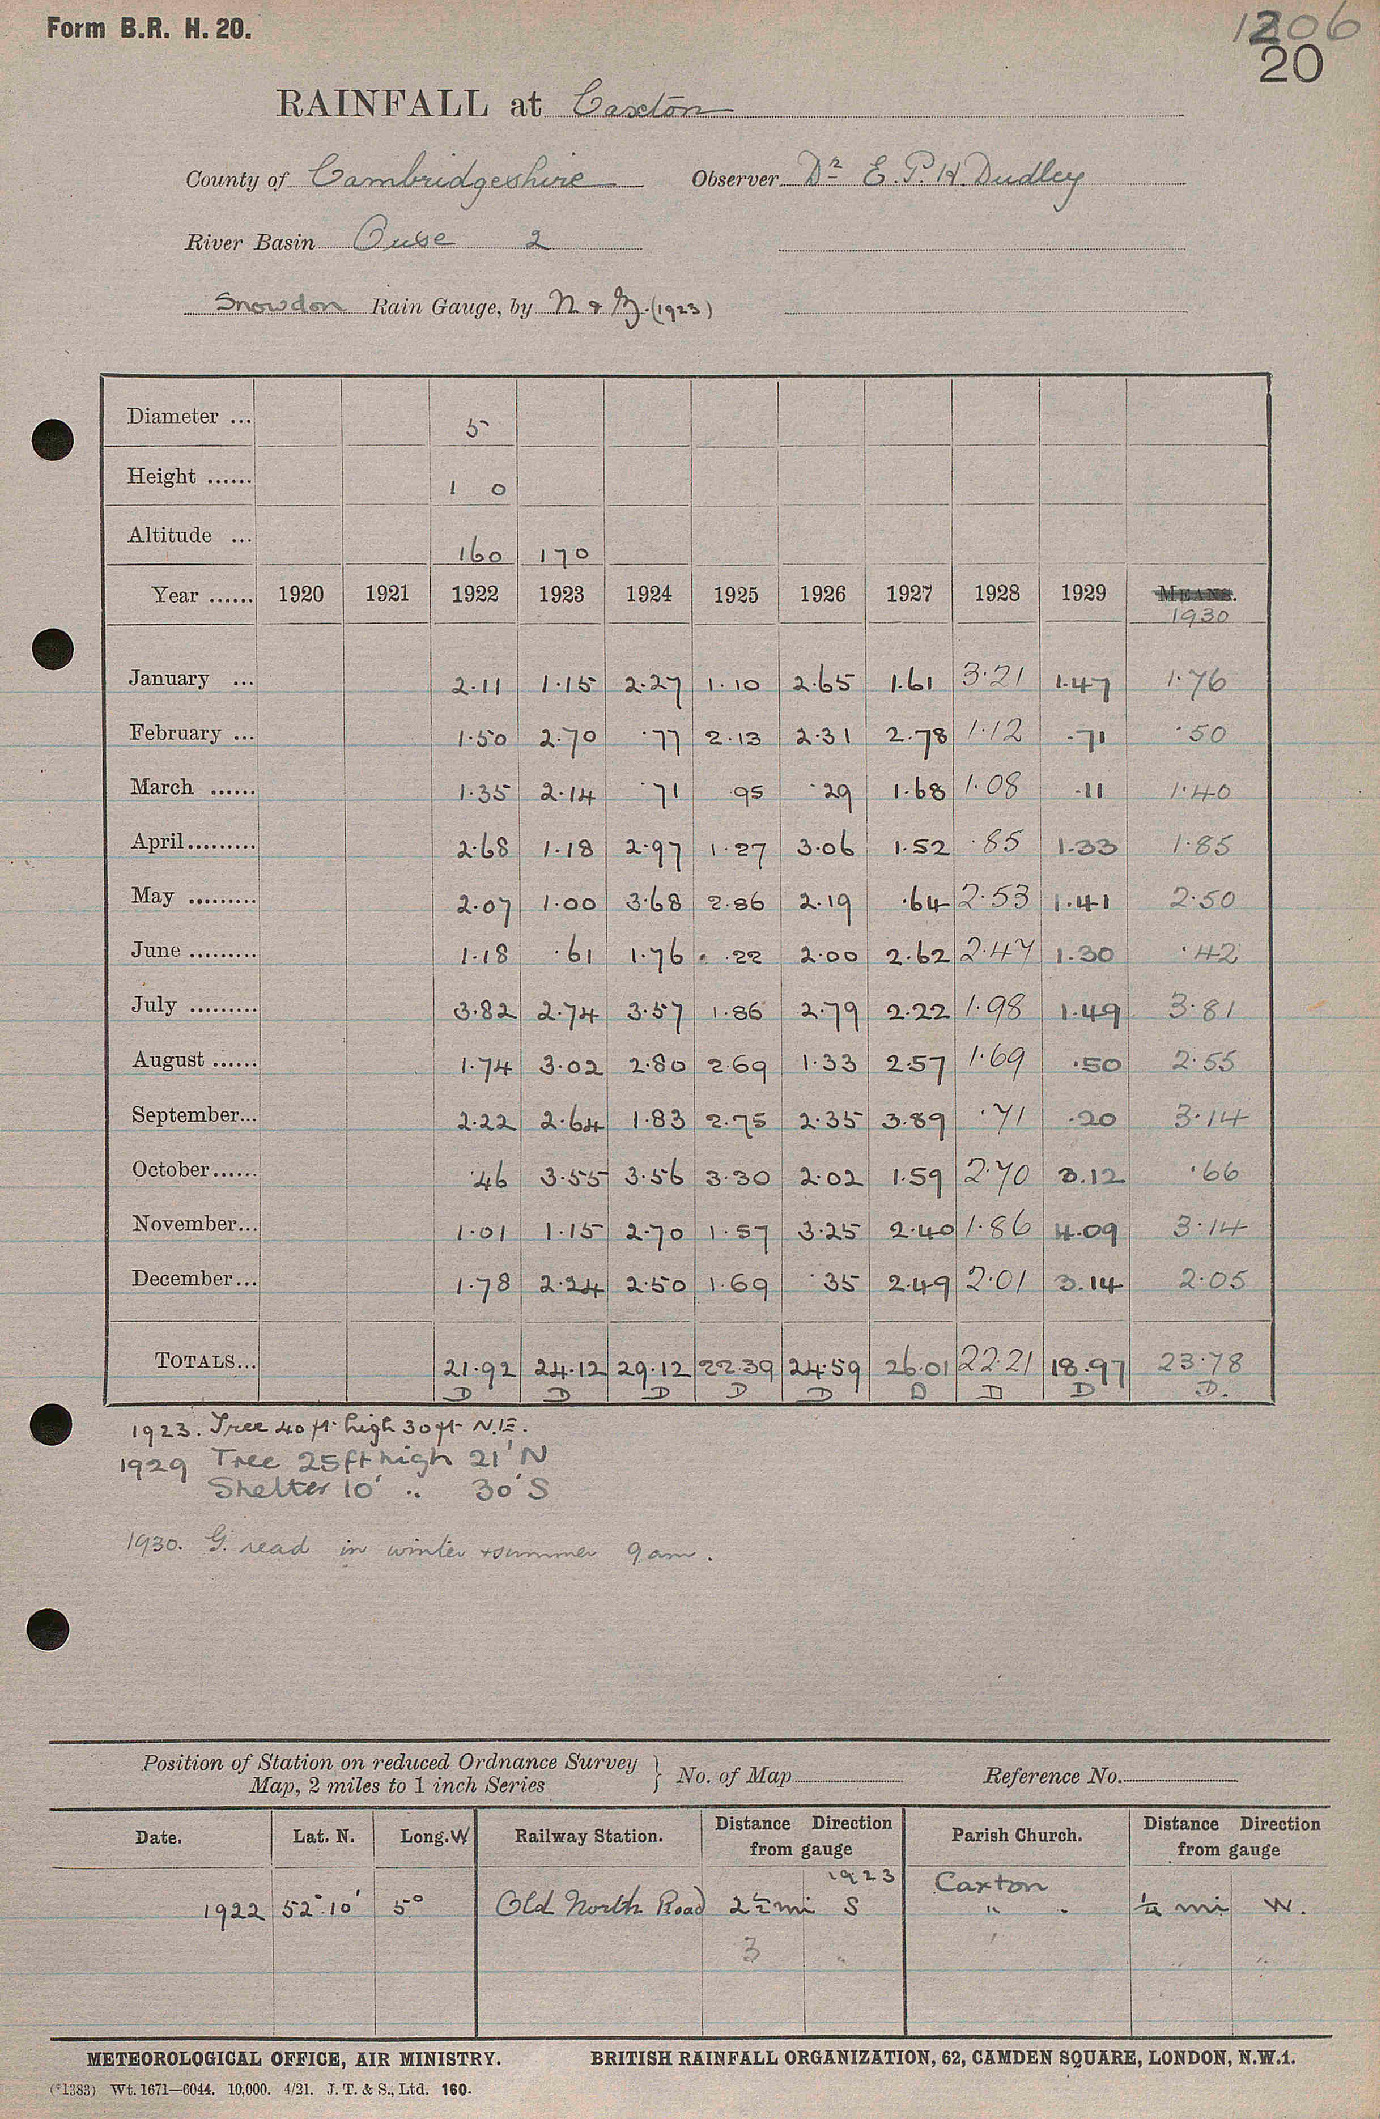 Form B.R. H. 20.
1206
20
RAINFALL at Caxton
County of Cambridgeshire Observer Dr E. P. H. Dudley
River Basin Ouse 2
Snowdon Rain Gauge, by N & Z. (1923)
Diameter ... 5
Height ...... 1 0
Altitude ... 160 170
Year ...... 1920 1921 1922 1923 1924 1925 1926 1927 1928 1929 MEANS. 1930
January ... 2.11 1.15 2.27 1.10 2.65 1.61 3.21 1.47 1.76
February ... 1.50 2.70 .77 2.13 2.31 2.78 1.12 .71 .50
March ...... 1.35 2.14 .71 .95 .29 1.68 1.08 .11 1.40
April......... 2.68 1.18 2.97 1.27 3.06 1.52 .85 1.33 1.85
May ......... 2.07 1.00 3.68 2.86 2.19 .64 2.53 1.41 2.50
June ......... 1.18 .61 1.76 .22 2.00 2.62 2.47 1.30 .42
July ......... 3.82 2.74 3.57 1.86 2.79 2.22 1.98 1.49 3.81
August ...... 1.74 3.02 2.80 2.69 1.33 2.57 1.69 .50 2.55
September... 2.22 2.64 1.83 2.75 2.35 3.89 .71 .20 3.14
October...... .46 3.55 3.56 3.30 2.02 1.59 2.70 3.12 .66
November... 1.01 1.15 2.70 1.57 3.25 2.40 1.86 4.09 3.14
December... 1.78 2.24 2.50 1.69 .35 2.49 2.01 3.14 2.05
TOTALS... 21.92 24.12 29.12 22.39 24.59 26.01 22.21 18.97 23.78
D D D D D D D D D.
1923. Tree 40 ft. high 30 ft. N.E.
1929 Tree 25ft high 21' N
Shelter 10' .. 30' S
1930. G. read in winter + summer 9 am.
Position of Station on reduced Ordnance Survey
Map, 2 miles to 1 inch Series } No. of Map Reference No.
Date. Lat. N. Long. W Railway Station. Distance Direction from gauge Parish Church. Distance Direction from gauge
1923 Caxton
1922 52° 10' 5° Old North Road 2½ mi S " " ¼ mi W.
3 " " " "
METEOROLOGICAL OFFICE, AIR MINISTRY. BRITISH RAINFALL ORGANIZATION, 62, CAMDEN SQUARE, LONDON, N.W.1.
(*1383) Wt. 1671—6044. 10,000. 4/21. J. T. & S., Ltd. 160.